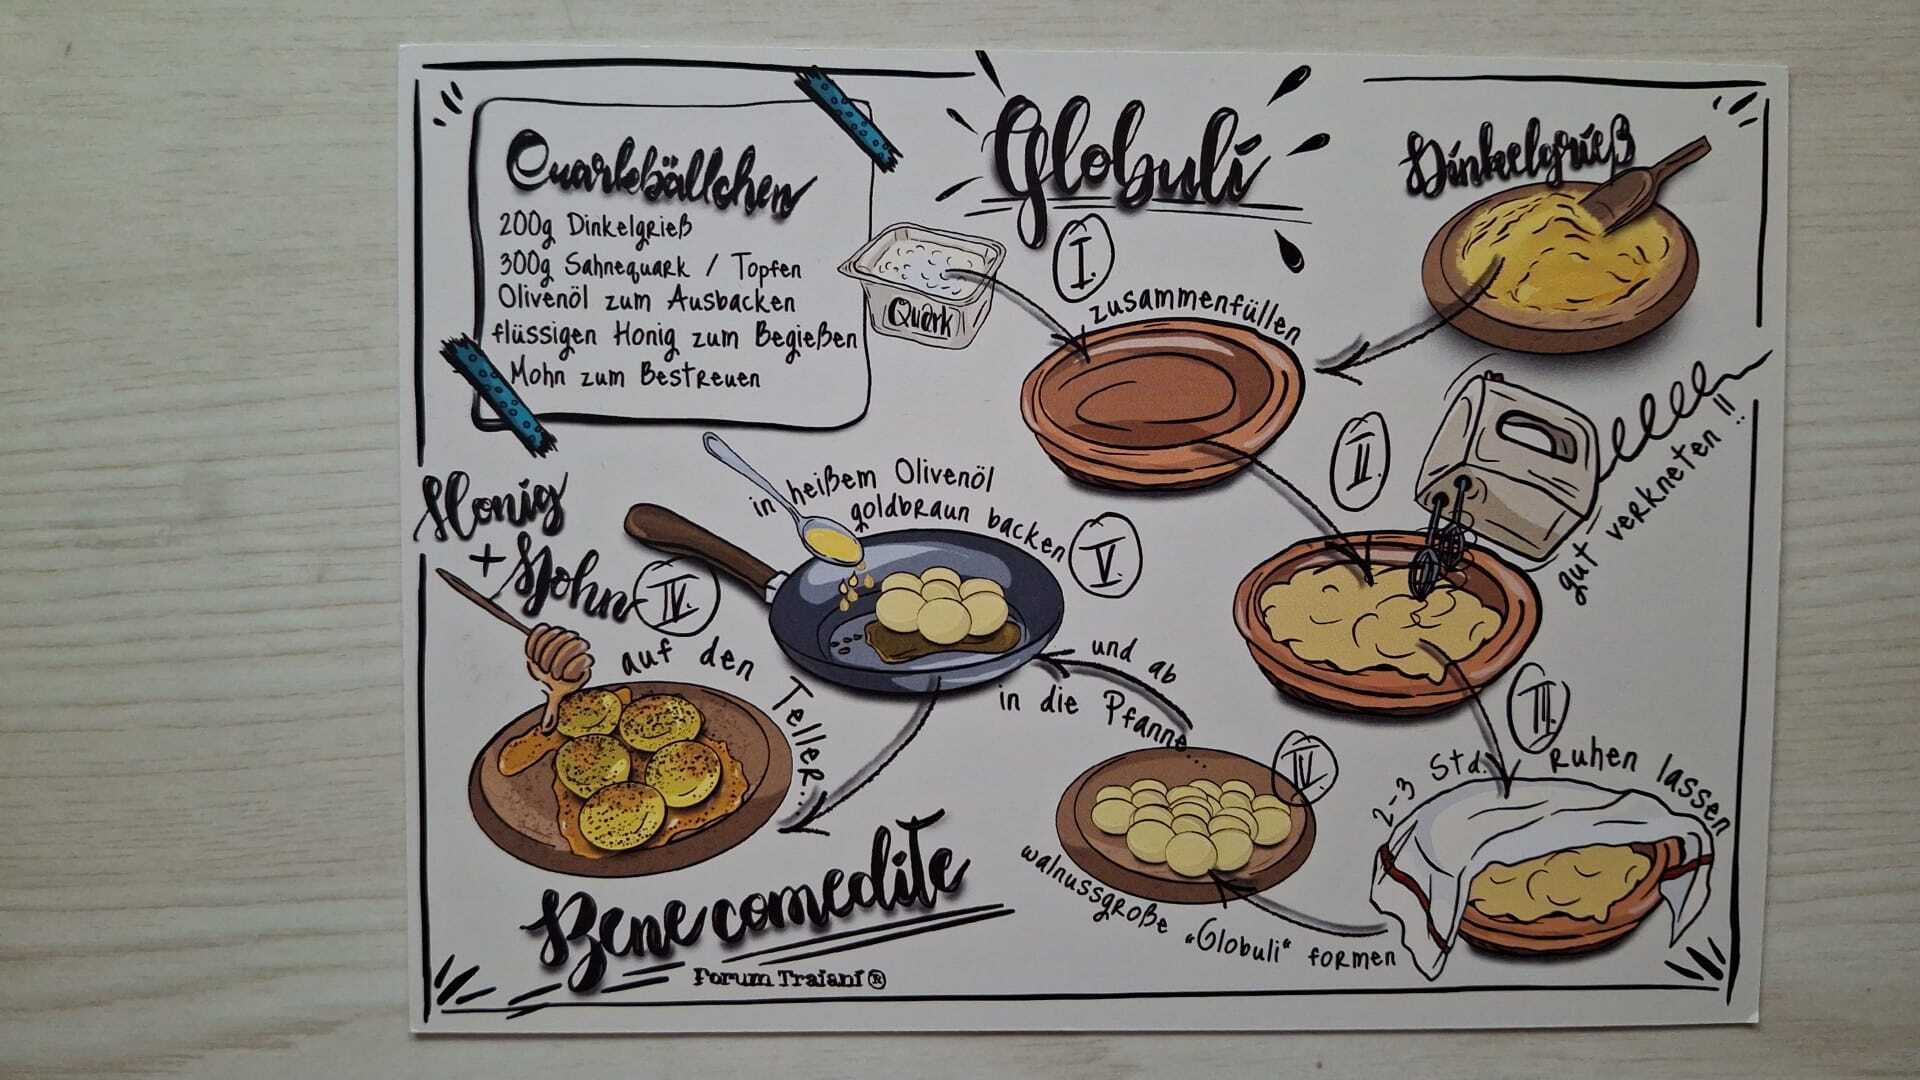 Globuli
Quarkbällchen
200g Dinkelgrieß
300g Sahnequark / Topfen
Olivenöl zum Ausbacken
flüssigen Honig zum Begießen
Mohn zum Bestreuen
Dinkelgrieß
Quark
I.
zusammenfüllen
II.
gut verkneten !!
III.
2-3 Std. ruhen lassen
IV.
walnussgroße „Globuli“ formen
und ab
in die Pfanne...
V.
in heißem Olivenöl
goldbraun backen
IV.
auf den Teller...
Honig
+ Mohn
Bene comedite
Forum Traiani®